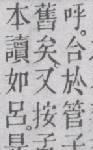 呼。合於管子
舊矣。又按子
本讀如呂。是